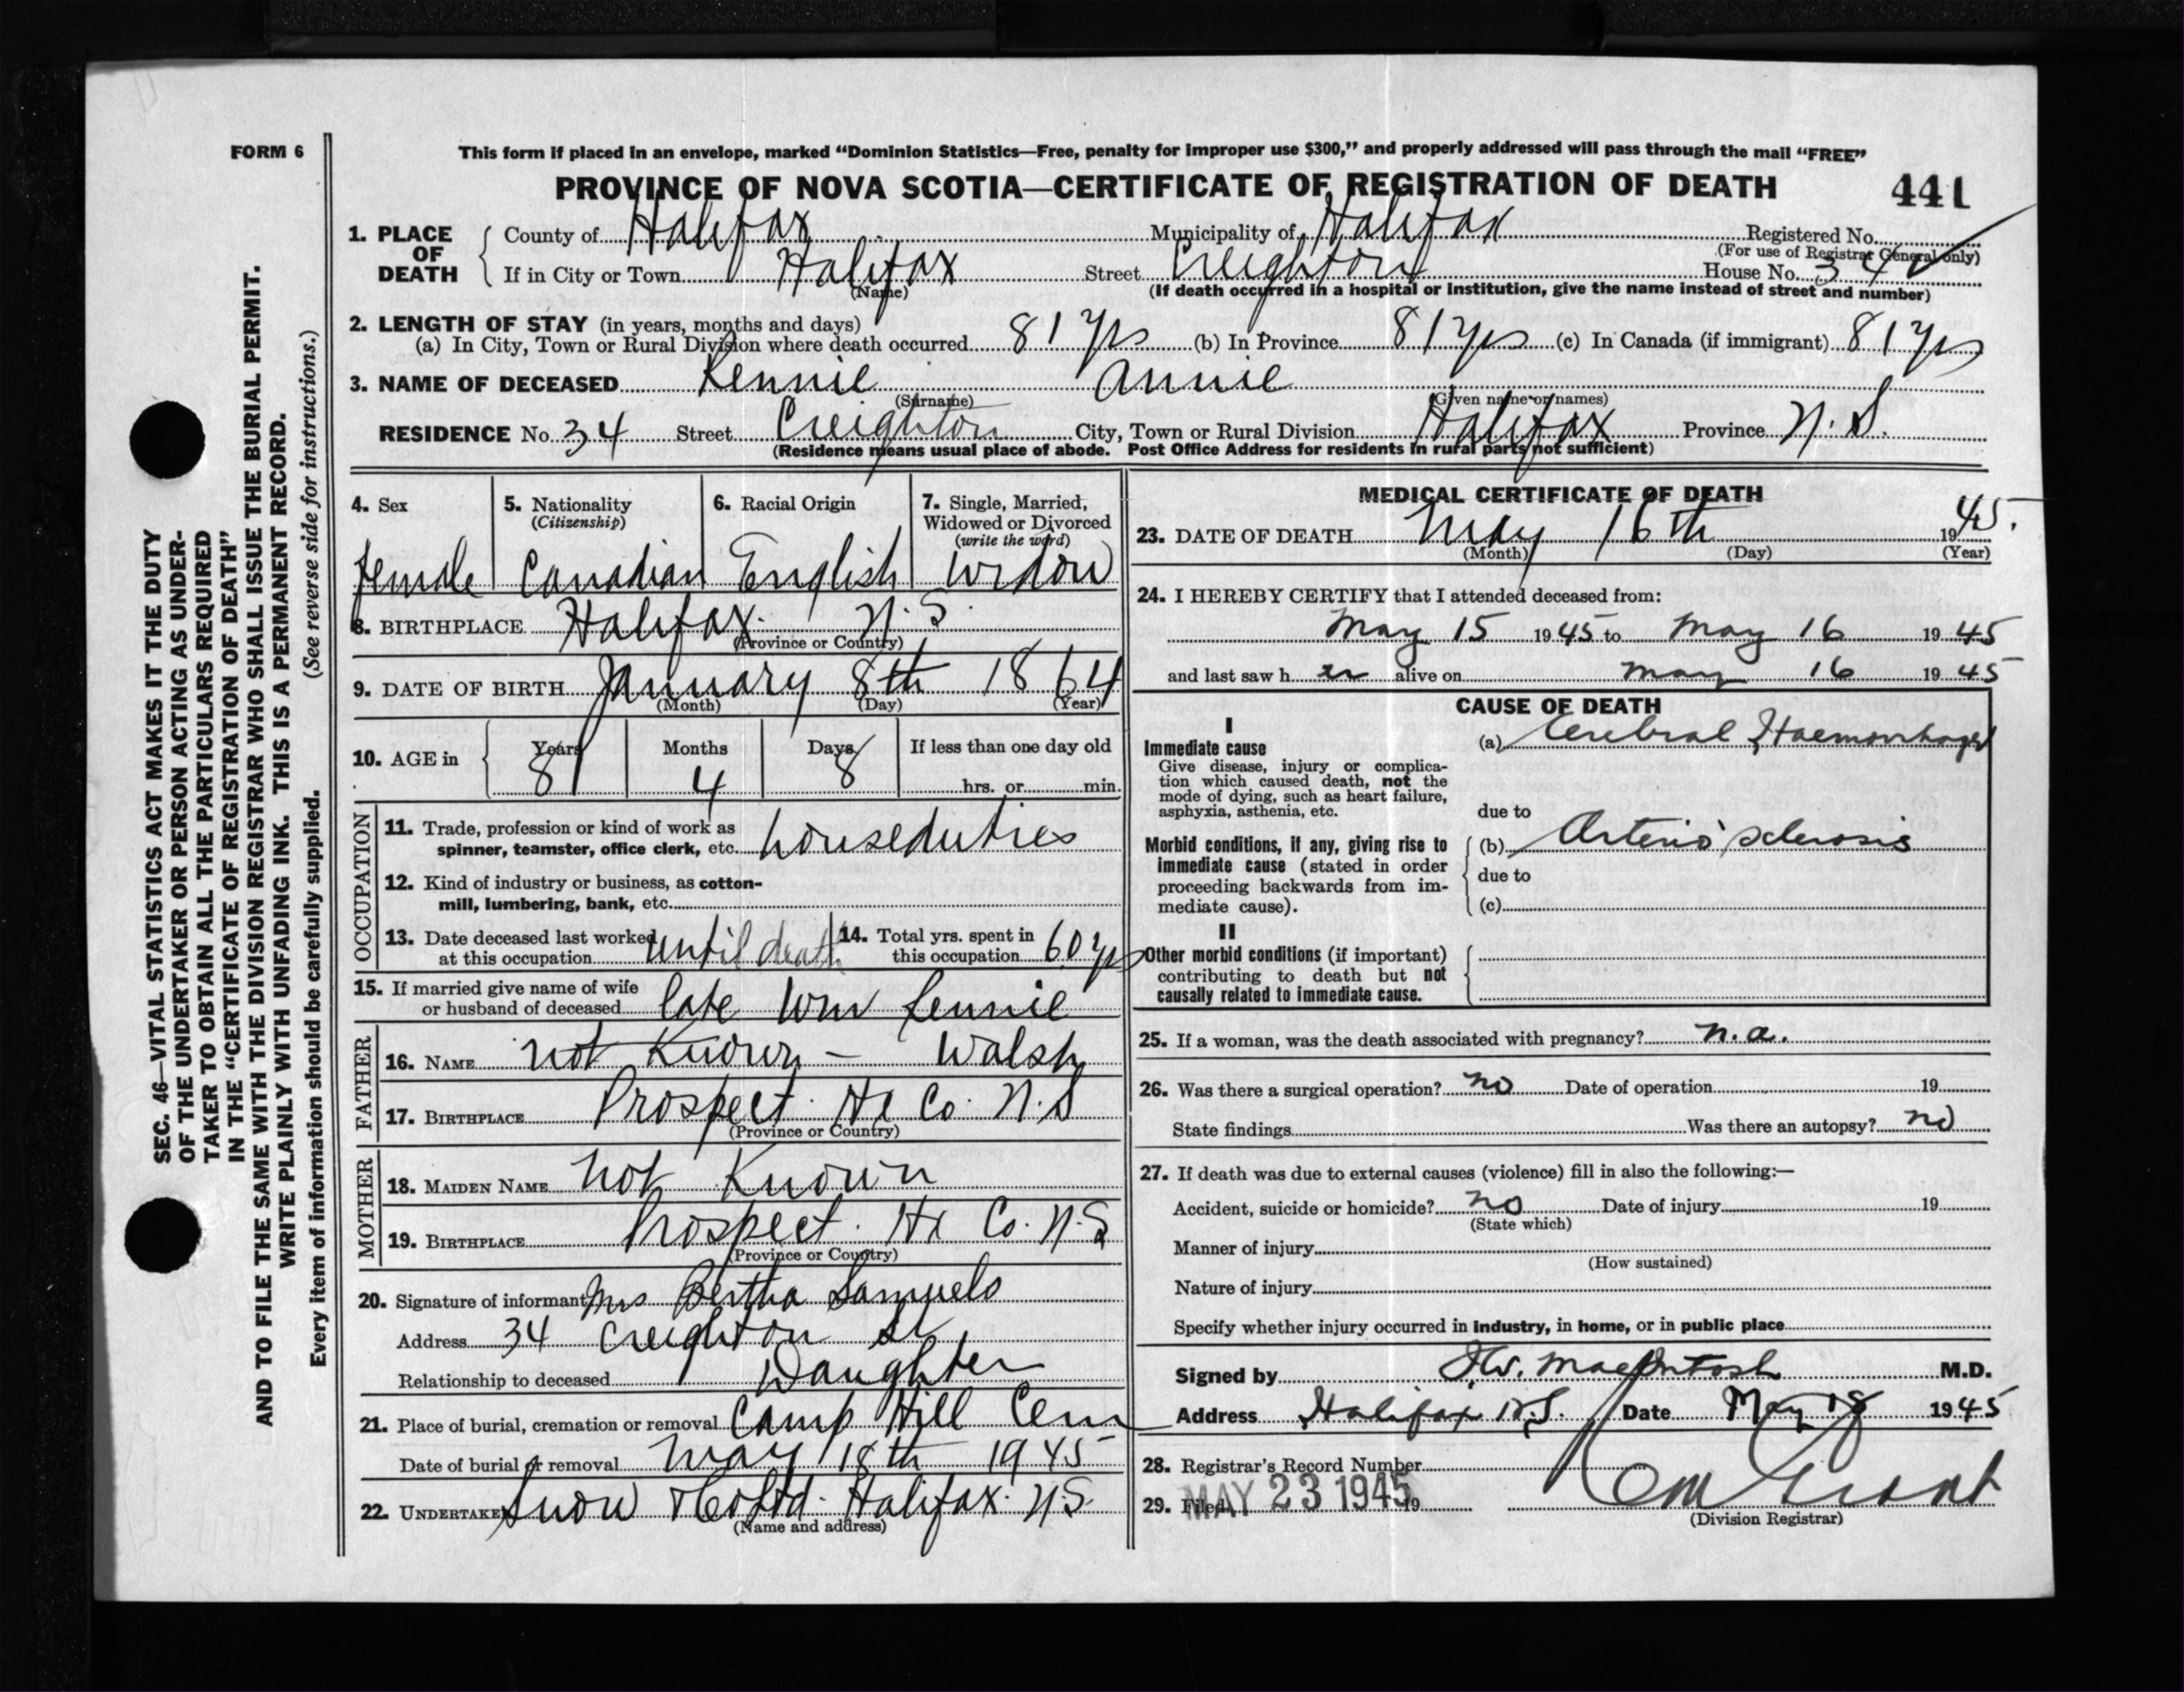 FORM 6
This form if placed in an envelope, marked “Dominion Statistics—Free, penalty for improper use $300,” and properly addressed will pass through the mail “FREE”
PROVINCE OF NOVA SCOTIA—CERTIFICATE OF REGISTRATION OF DEATH 441
1. PLACE OF DEATH
County of Halifax Municipality of Halifax Registered No.
(For use of Registrar General only)
If in City or Town Halifax Street Creighton House No. 34
(Name) (If death occurred in a hospital or institution, give the name instead of street and number)
2. LENGTH OF STAY (in years, months and days)
(a) In City, Town or Rural Division where death occurred 81 yrs (b) In Province 81 yrs (c) In Canada (if immigrant) 81 yrs
3. NAME OF DECEASED Rennie Annie
(Surname) (Given name or names)
RESIDENCE No. 34 Street Creighton City, Town or Rural Division Halifax Province N.S.
(Residence means usual place of abode. Post Office Address for residents in rural parts not sufficient)
4. Sex
Female
5. Nationality
(Citizenship)
Canadian
6. Racial Origin
English
7. Single, Married,
Widowed or Divorced
(write the word)
Widow
8. BIRTHPLACE Halifax. N.S.
(Province or Country)
9. DATE OF BIRTH January 8th 1864
(Month) (Day) (Year)
10. AGE in
Years Months Days If less than one day old
81 4 8 hrs. or min.
OCCUPATION
11. Trade, profession or kind of work as
spinner, teamster, office clerk, etc. houseduties
12. Kind of industry or business, as cotton-
mill, lumbering, bank, etc.
13. Date deceased last worked
at this occupation until death
14. Total yrs. spent in
this occupation 60 yrs
15. If married give name of wife
or husband of deceased late Wm Rennie
FATHER
16. NAME not Known – Walsh
17. BIRTHPLACE Prospect. Hx Co. N.S
(Province or Country)
MOTHER
18. MAIDEN NAME not Known
19. BIRTHPLACE Prospect. Hx Co. N.S
(Province or Country)
20. Signature of informant Mrs Bertha Samuels
Address 34 Creighton St
Relationship to deceased Daughter
21. Place of burial, cremation or removal Camp Hill Cem
Date of burial or removal May 18th 1945
22. UNDERTAKER Snow & Co Ltd. Halifax. N.S.
(Name and address)
MEDICAL CERTIFICATE OF DEATH
23. DATE OF DEATH May 16th 1945.
(Month) (Day) (Year)
24. I HEREBY CERTIFY that I attended deceased from:
May 15 1945 to May 16 1945
and last saw her alive on May 16 1945
CAUSE OF DEATH
I
Immediate cause
Give disease, injury or complica-
tion which caused death, not the
mode of dying, such as heart failure,
asphyxia, asthenia, etc.
(a) Cerebral Haemorhage
due to
Morbid conditions, if any, giving rise to
immediate cause (stated in order
proceeding backwards from im-
mediate cause).
(b) Arterio sclerosis
due to
(c)
II
Other morbid conditions (if important)
contributing to death but not
causally related to immediate cause.
25. If a woman, was the death associated with pregnancy? n.a.
26. Was there a surgical operation? no Date of operation 19
State findings Was there an autopsy? no
27. If death was due to external causes (violence) fill in also the following:—
Accident, suicide or homicide? no Date of injury 19
(State which)
Manner of injury
(How sustained)
Nature of injury
Specify whether injury occurred in industry, in home, or in public place
Signed by MacIntosh M.D.
Address Halifax N.S. Date May 18 1945
28. Registrar's Record Number
29. Filed MAY 23 1945 19
(Division Registrar)
SEC. 46—VITAL STATISTICS ACT MAKES IT THE DUTY
OF THE UNDERTAKER OR PERSON ACTING AS UNDER-
TAKER TO OBTAIN ALL THE PARTICULARS REQUIRED
IN THE “CERTIFICATE OF REGISTRATION OF DEATH”
AND TO FILE THE SAME WITH THE DIVISION REGISTRAR WHO SHALL ISSUE THE BURIAL PERMIT.
WRITE PLAINLY WITH UNFADING INK. THIS IS A PERMANENT RECORD.
Every item of information should be carefully supplied. (See reverse side for instructions.)